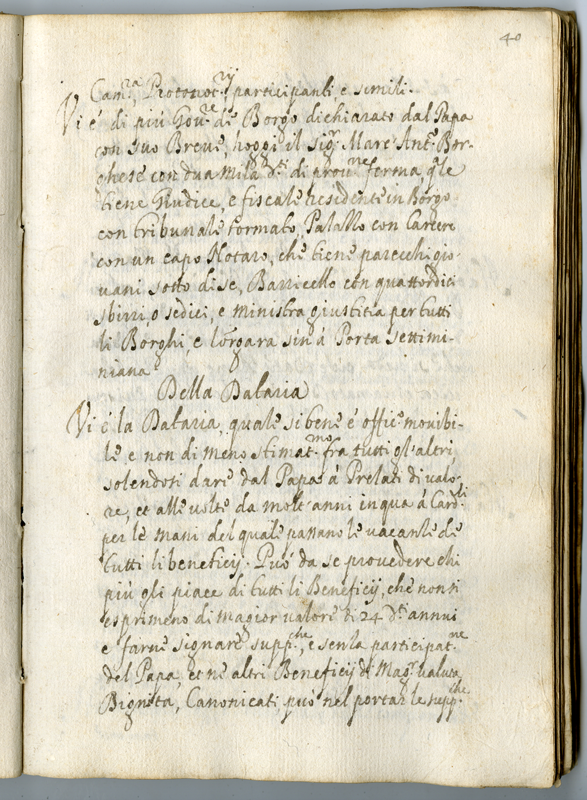 40
Cam.ra, Protonot.rij participanti, e simili.
Vi é di più Gou.re di Borgo dichiarato dal Papa
con suo Breue, hoggi il Sig.r Marc' Ant.o Bor-
ghese con dua mila d.ti di prou.ne ferma q.le
tiene Giudice, e fiscale residente in Borgo
con tribunale formato, Palazzo con Carcere
con un capo Notaro, che tiene parecchi gio-
uani sotto di se, Barricello con quattordici
sbirri, o sedici, e ministra giustitia per tutti
li Borghi, e longara sin' á Porta Settimi-
niana
Della Dataria
Vi é la Dataria, quale si bene é offic.o mouibi-
le, e non di meno stimat.mo fra tutti gl'altri,
solendosi dare dal Papa á Prelati di valo-
re, et alle volte da molt'anni in qua á Card.li
per le mani del quale passano le vacante di
tutti li beneficij. Può da se prouedere chi
più gli piace di tutti li Beneficij, che non si
esprimeno di magior valore di 24 d.ti annui
e farne signare supp.che, e senza participat.ne
del Papa, et ne altri Beneficij di Mag.r valuta
Dignità, Canonicati, può nel portar le supp.che